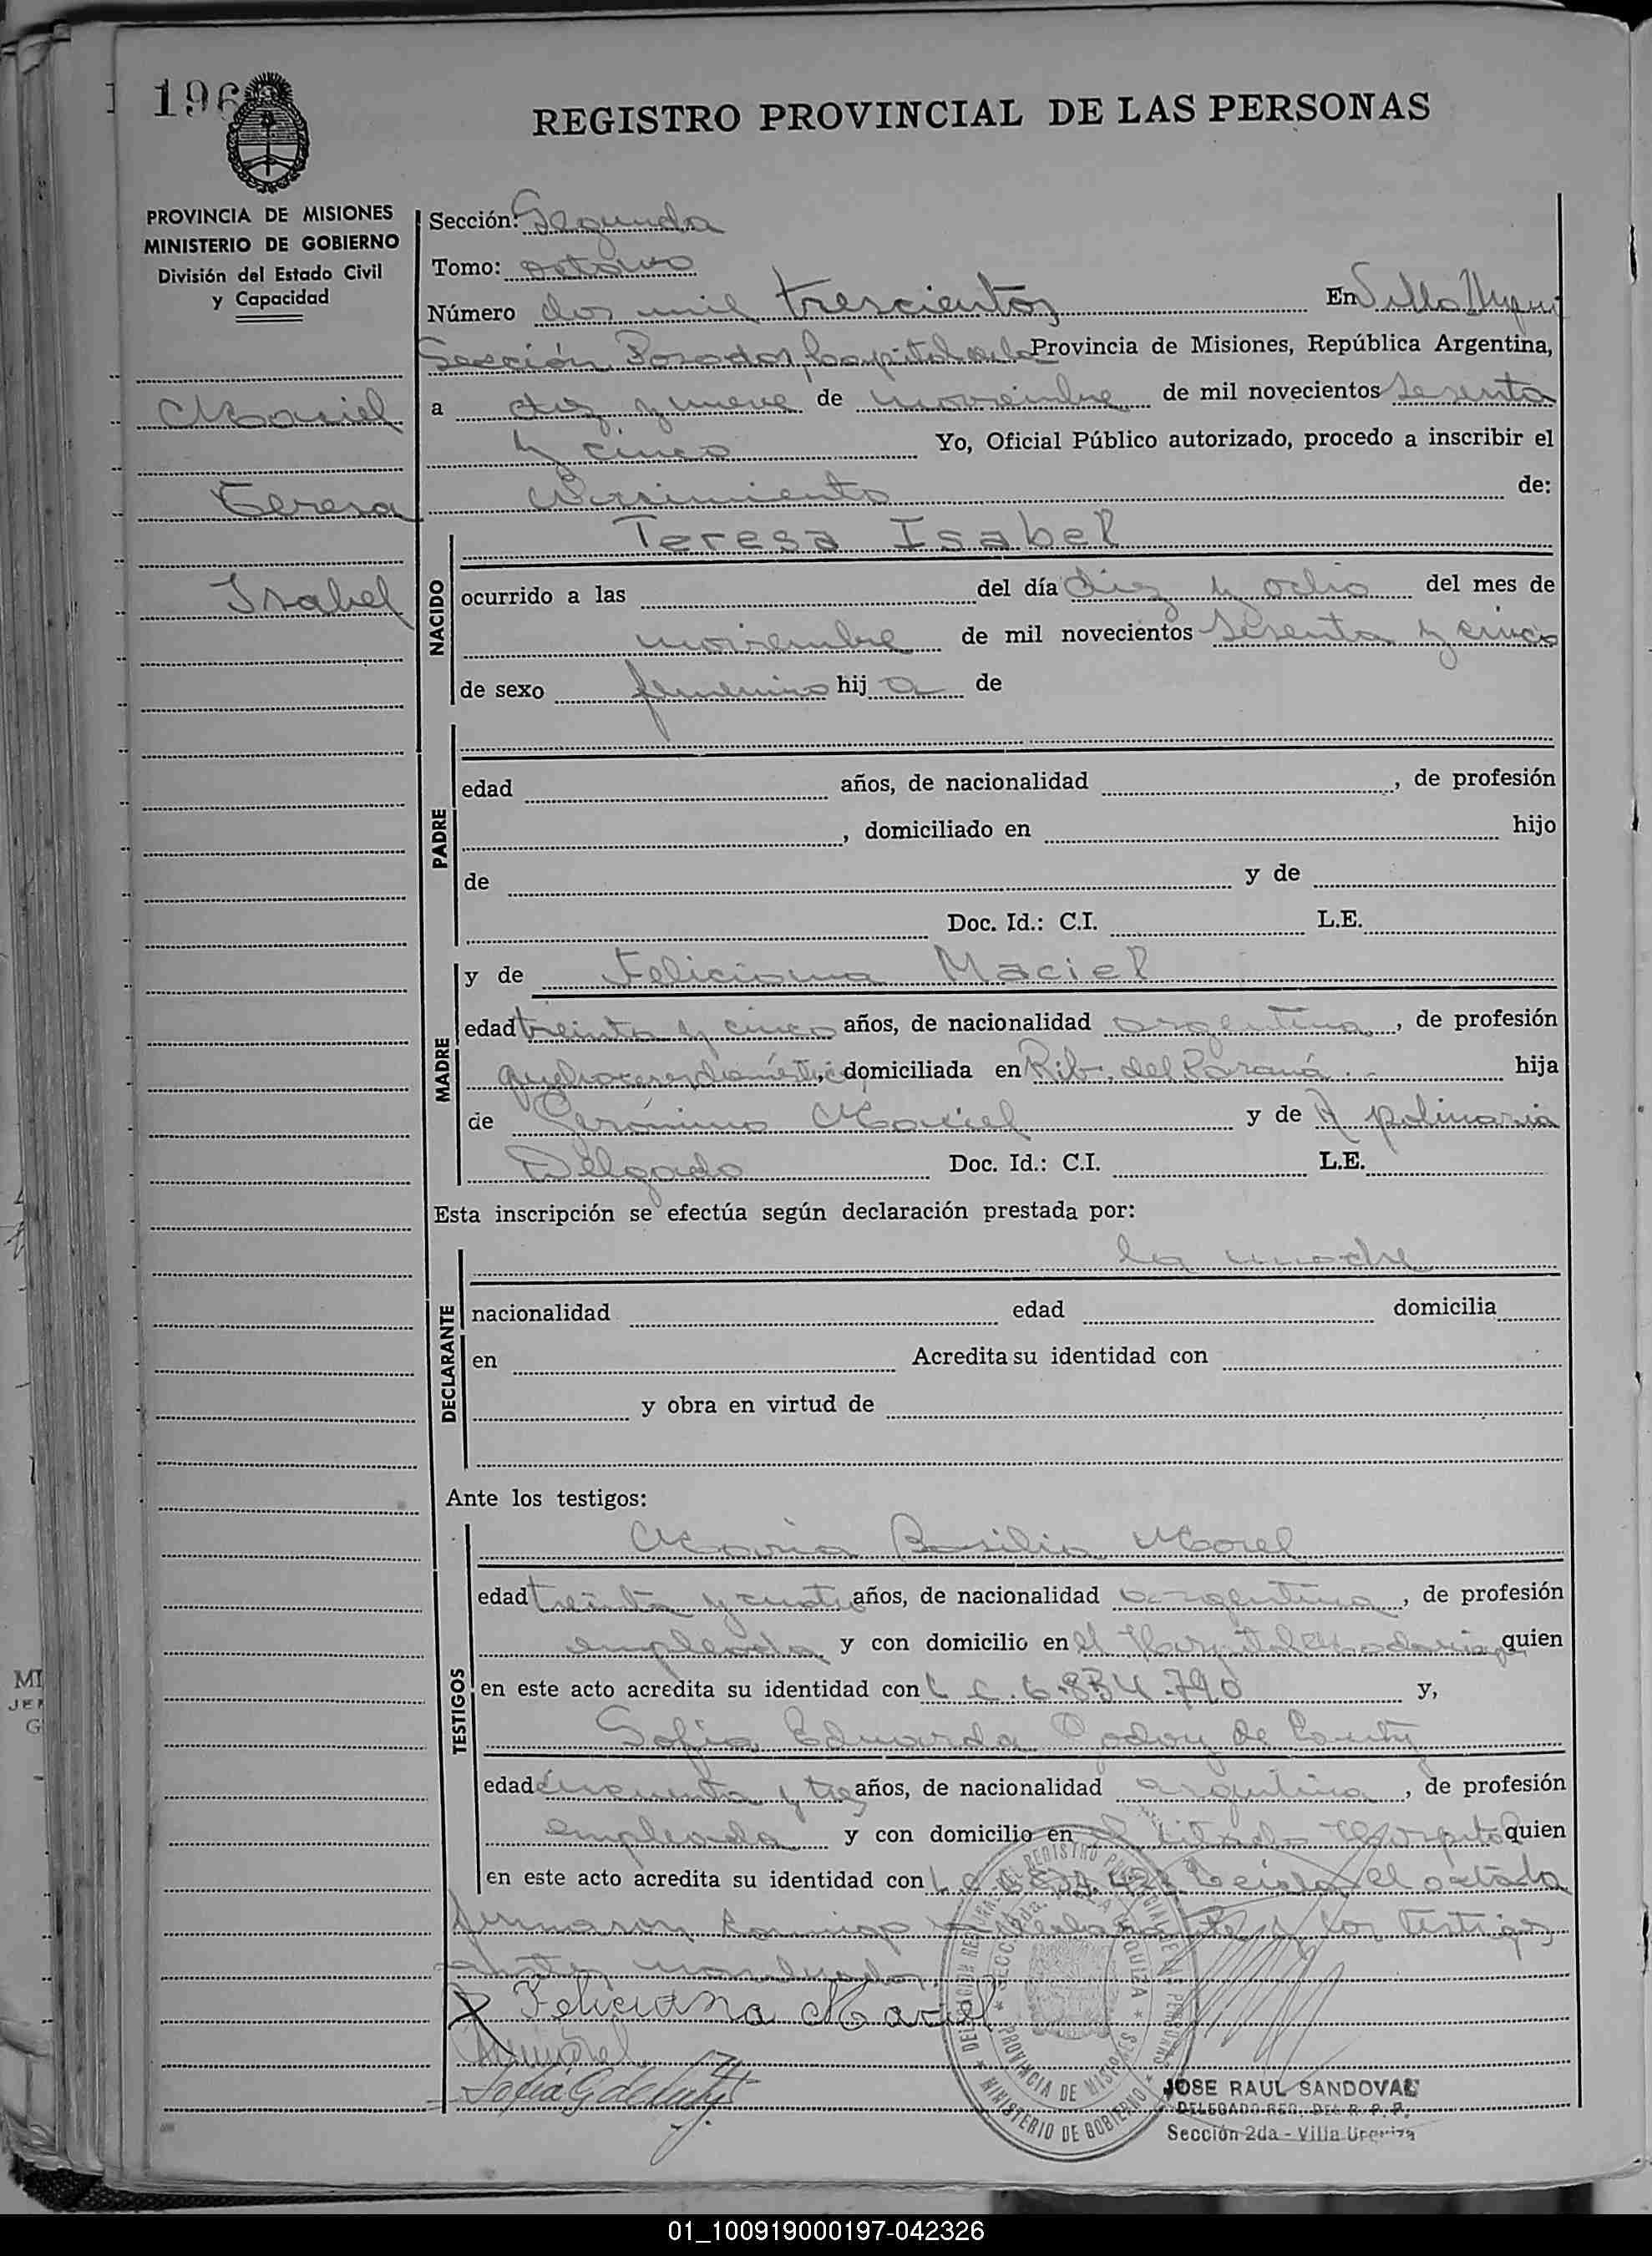 196
REGISTRO PROVINCIAL DE LAS PERSONAS
PROVINCIA DE MISIONES
MINISTERIO DE GOBIERNO
División del Estado Civil
y Capacidad
Maciel
Teresa
Isabel
Sección: Segunda
Tomo: octavo
Número dos mil trescientos En Villa
Sección Posadas, Capital de la Provincia de Misiones, República Argentina,
a diez y nueve de noviembre de mil novecientos sesenta
y cinco Yo, Oficial Público autorizado, procedo a inscribir el
Nacimiento de:
NACIDO
Teresa Isabel
ocurrido a las del día diez y ocho del mes de
noviembre de mil novecientos sesenta y cinco
de sexo femenino hij a de
PADRE
edad años, de nacionalidad , de profesión
, domiciliado en hijo
de y de
Doc. Id.: C.I. L.E.
MADRE
y de Feliciana Maciel
edad treinta y cinco años, de nacionalidad argentina, de profesión
domiciliada en Rib. del Paraná hija
de Gerónimo Maciel y de Apolinaria
Delgado Doc. Id.: C.I. L.E.
Esta inscripción se efectúa según declaración prestada por:
la madre
DECLARANTE
nacionalidad edad domicilia
en Acredita su identidad con
y obra en virtud de
Ante los testigos:
TESTIGOS
María Basilia Morel
edad treinta y cuatro años, de nacionalidad argentina, de profesión
empleada y con domicilio en el Hospital Madariaga quien
en este acto acredita su identidad con L.C. 6.834.790 y,
Sofia Eduarda Godoy de
edad cincuenta y tres años, de nacionalidad argentina, de profesión
empleada y con domicilio en el citado Hospital quien
en este acto acredita su identidad con L.C. Leida el acta la
firmaron conmigo la declarante y los testigos
antes nombrados.
Feliciana Maciel
Sofia G de
PROVINCIA DE MISIONES
MINISTERIO DE GOBIERNO
JOSE RAUL SANDOVAL
DELEGADO REG. DEL R. P. P.
Sección 2da - Villa Urquiza
01_100919000197-042326